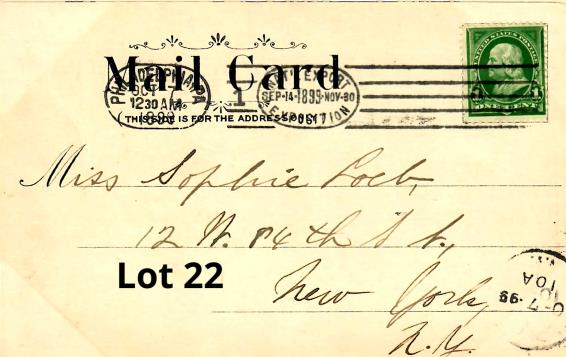 Mail Card
PHILADELPHIA, PA
OCT
12 30 AM
1899
1
NAT'L EXPORT
SEP-14-1899-NOV-30
EXPOSITION
(THIS SIDE IS FOR THE ADDRESS ONLY)
UNITED STATES POSTAGE
1 1
ONE CENT
Miss Sophie Loeb,
12 W. 84th St.,
Lot 22
New York,
N.Y.
7-99
10A
N.Y.